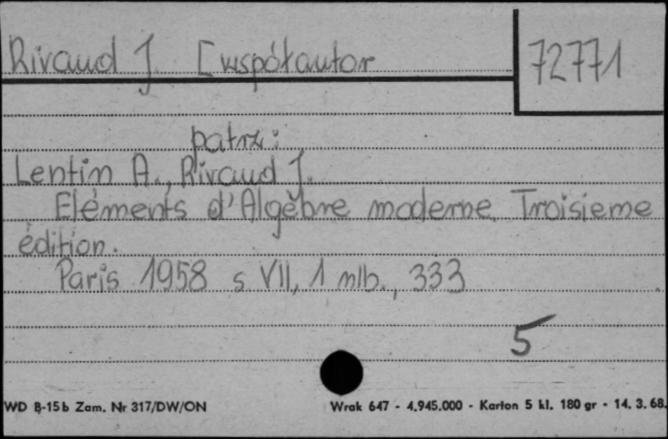 Rivaud J. [współautor
72771
patrz:
Lentin A., Rivaud J.
Eléments d'Algèbre moderne. Troisieme
édition.
Paris 1958 s VII, 1 nlb., 333
5
WD B-15b Zam. Nr 317/DW/ON
Wrak 647 - 4.945.000 - Karton 5 kl. 180 gr - 14. 3. 68.